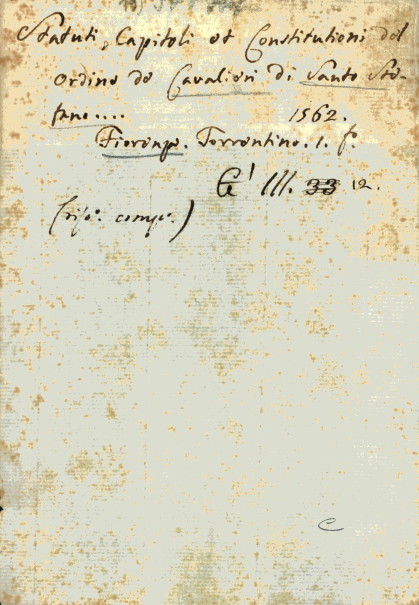 Statuti, Capitoli et Constitutioni del
Ordine de Cavalieri di Santo Ste-
fano.... 1562.
Fiorenza. Torrentino. 1. f.
III. 33 12.
(rip.
C